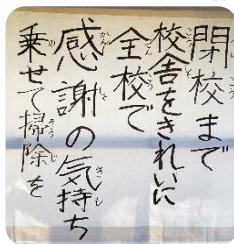 閉校まで
校舎をきれいに
全校で
感謝の気持ち
乗せて掃除を